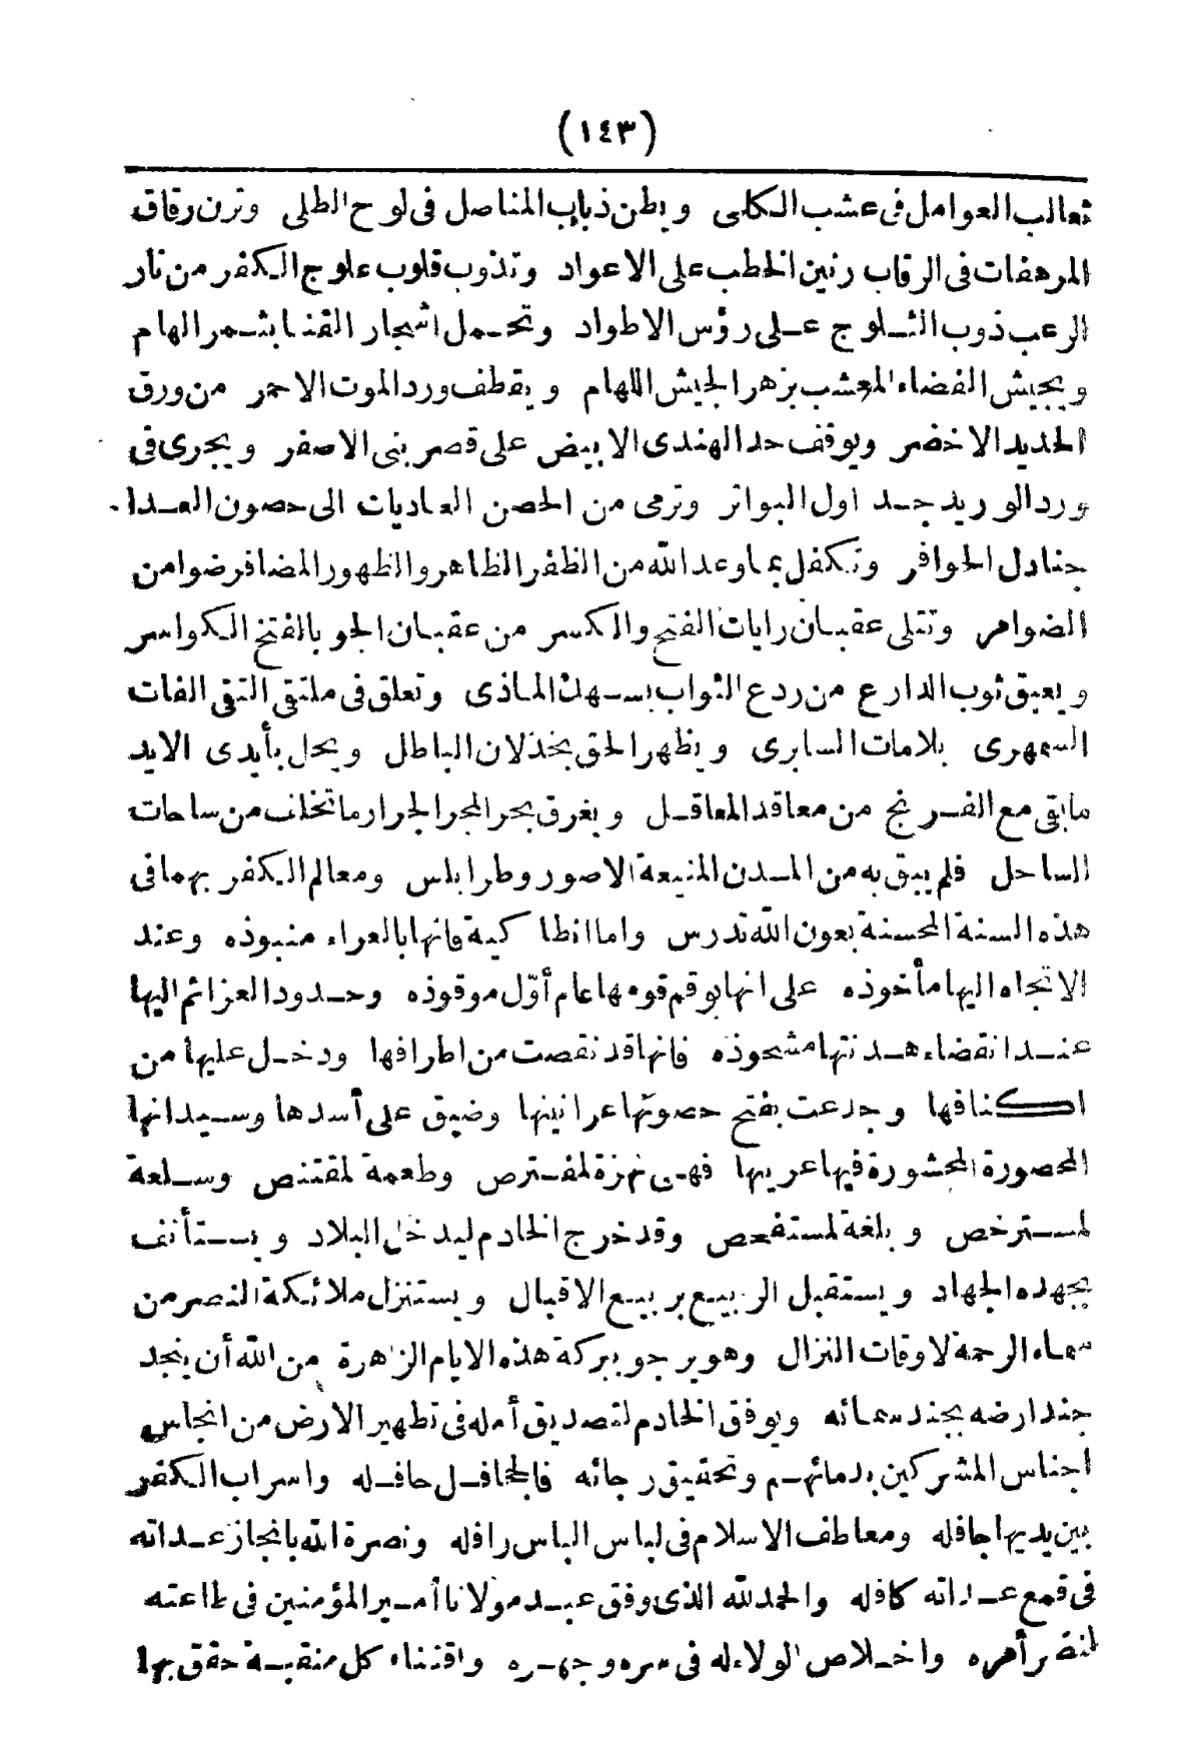 (١٤٣)
ثعالب العوامل فى عشب الكلى ويطن ذباب المناصل فى لوح الطلى وترن رقاق
المرهفات فى الرقاب رنين الخطب على الاعواد وتذوب قلوب علوج الكفر من نار
الرعب ذوب الثلوج على رؤس الاطواد وتحمل اشجار القنا بثمر الهام
ويجيش الفضاء المعشب بزهر الجيش اللهام ويقطف ورد الموت الاحمر من ورق
الحديد الاخضر ويوقف حد الهندى الابيض على قصر بنى الاصفر ويجرى فى
ورد الوريد جداول البواتر وترمى من الحصن العاديات الى حصون العدا
جنادل الحوافر وتكفل بما وعد الله من الظفر الظاهر والظهور المضافر ضوامن
الضوامر وتتلى عقبان رايات الفتح والكسر من عقبان الجو بالفتخ الكواسر
ويعبق ثوب الدارع من ردع الثواب بسهك الماذى وتعلق فى ملتقى التقى الفات
السمهرى بلامات السابرى ويظهر الحق بخذلان الباطل ويحل بأيدى الايد
مابقى مع الفرنج من معاقد المعاقل ويغرق بحر المجر الجرار ما تخلف من ساحات
الساحل فلم يبق به من المدن المنيعة الاصور وطرابلس ومعالم الكفر بهما فى
هذه السنة المحسنة بعون الله تدرس واما انطاكية فانها بالعراء منبوذه وعند
الاتجاه اليها مأخوذه على انها بوقم قومها عام أوّل موقوذه وحدود العزائم اليها
عند انقضاء هدنتها مشحوذه فانها قد نقصت من اطرافها ودخل عليها من
اكنافها وجدعت بفتح حصونها عرانينها وضيق على أسدها وسيدانها
المحصورة المحشورة فيها عرينها فهى نهزة لمفترص وطعمة لمقتنص وسلعة
لمسترخص وبلغة لمستفحص وقد خرج الخادم ليدخل البلاد ويستأنف
بجهده الجهاد ويستقبل الربيع بربيع الاقبال ويستنزل ملائكة النصر من
سماء الرحمة لاوقات النزال وهو يرجو ببركة هذه الايام الزاهرة من الله أن ينجد
جند ارضه بجند سمائه ويوفق الخادم لتصديق أمله فى تطهير الارض من انجاس
اجناس المشركين بدمائهم وتحقيق رجائه فالجحافل حافله واسراب الكفر
بين يديها جافله ومعاطف الاسلام فى لباس الباس رافله ونصرة الله بانجاز عداته
فى قمع عداته كافله والحمد لله الذى وفق عبد مولانا أمير المؤمنين فى طاعته
لنصر أمره واخلاص الولاء له فى سره وجهره واقتناء كل منقبة حقق بها